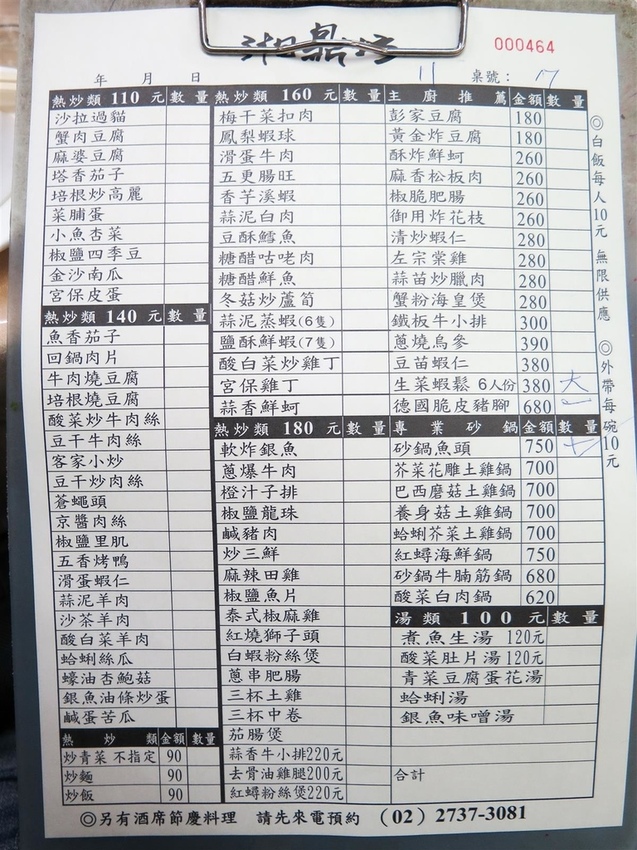 湘鼎坊
000464
年 月 日 11 桌號： 17
熱炒類 110 元 數量
沙拉過貓
蟹肉豆腐
麻婆豆腐
塔香茄子
培根炒高麗
菜脯蛋
小魚杏菜
椒鹽四季豆
金沙南瓜
宮保皮蛋
熱炒類 140 元 數量
魚香茄子
回鍋肉片
牛肉燒豆腐
培根燒豆腐
酸菜炒牛肉絲
豆干牛肉絲
客家小炒
豆干炒肉絲
蒼蠅頭
京醬肉絲
椒鹽里肌
五香烤鴨
滑蛋蝦仁
蒜泥羊肉
沙茶羊肉
酸白菜羊肉
蛤蜊絲瓜
蠔油杏鮑菇
銀魚油條炒蛋
鹹蛋苦瓜
熱炒類 金額 數量
炒青菜 不指定 90
炒麵 90
炒飯 90
熱炒類 160 元 數量
梅干菜扣肉
鳳梨蝦球
滑蛋牛肉
五更腸旺
香芋溪蝦
蒜泥白肉
豆酥鱈魚
糖醋咕咾肉
糖醋鮮魚
冬菇炒蘆筍
蒜泥蒸蝦(6隻)
鹽酥鮮蝦(7隻)
酸白菜炒雞丁
宮保雞丁
蒜香鮮蚵
熱炒類 180 元 數量
軟炸銀魚
蔥爆牛肉
橙汁子排
椒鹽龍珠
鹹豬肉
炒三鮮
麻辣田雞
椒鹽魚片
泰式椒麻雞
紅燒獅子頭
白蝦粉絲煲
蔥串肥腸
三杯土雞
三杯中卷
茄腸煲
蒜香牛小排220元
去骨油雞腿200元
紅蟳粉絲煲220元
主廚推薦 金額 數量
彭家豆腐 180
黃金炸豆腐 180
酥炸鮮蚵 260
麻香松板肉 260
椒脆肥腸 260
御用炸花枝 260
清炒蝦仁 280
左宗棠雞 280
蒜苗炒臘肉 280
蟹粉海皇煲 280
鐵板牛小排 300
蔥燒烏參 390
豆苗蝦仁 380
生菜蝦鬆 6人份 380 大
德國脆皮豬腳 680
專業砂鍋 金額 數量
砂鍋魚頭 750
芥菜花雕土雞鍋 700
巴西磨菇土雞鍋 700
養身菇土雞鍋 700
蛤蜊芥菜土雞鍋 700
紅蟳海鮮鍋 750
砂鍋牛腩筋鍋 680
酸菜白肉鍋 620
湯類 100 元 數量
煮魚生湯 120元
酸菜肚片湯 120元
青菜豆腐蛋花湯
蛤蜊湯
銀魚味噌湯
合計
◎白飯每人10元 無限供應 ◎外帶每碗10元
◎另有酒席節慶料理 請先來電預約 （02）2737-3081